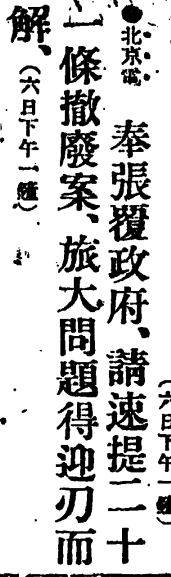 ●北京電　奉張覆政府、請速提二十
一條撤廢案、旅大問題得迎刃而
解、（六日下午一鐘）
（六日下午一鐘）